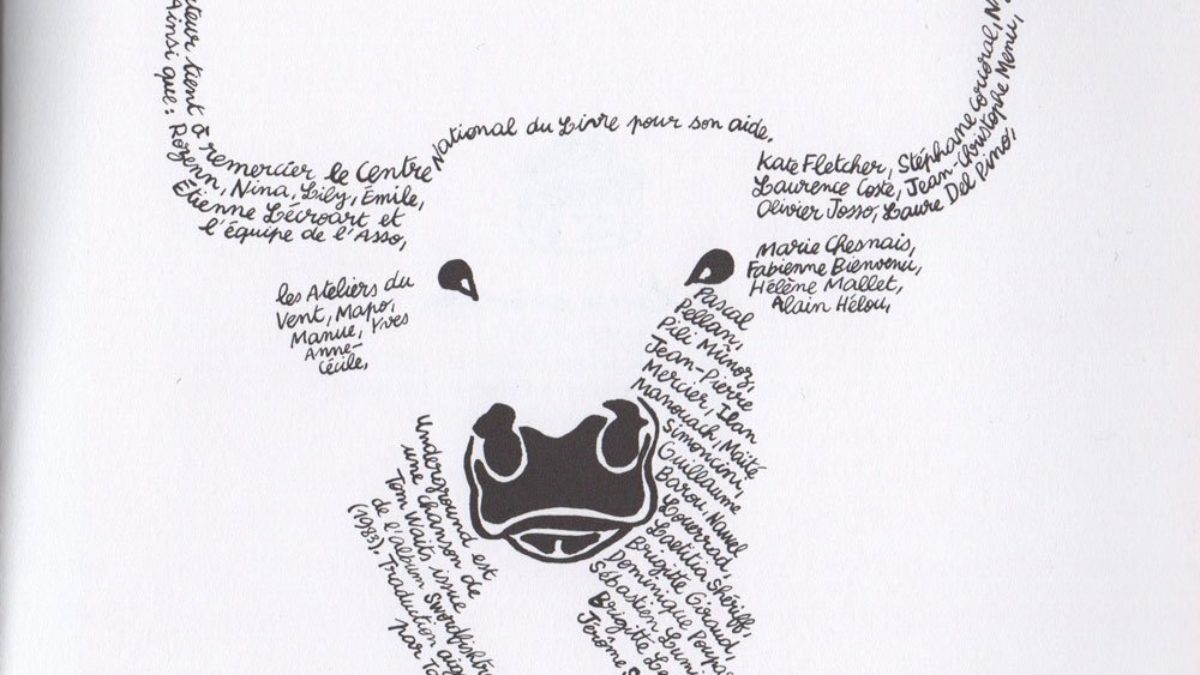 teur tient à remercier le Centre National du Livre pour son aide.
Ainsi que : Rozenn, Nina, Lily, Émile,
Étienne Lécroart et
l'équipe de l'Asso,
les Ateliers du
Vent, Mapo,
Manue, Yves
Anne-
Cécile,
Kate Fletcher, Stéphane Corcoral,
Laurence Coste, Jean-Christophe Menu,
Olivier Josso, Laure Del Pino,
Marie Chesnais,
Fabienne Bienvenu,
Hélène Mallet,
Alain Hélou,
Pascal
Pellan,
Pili Muñoz,
Jean-Pierre
Mercier, Ilan
Manouach, Maïté
Simoncini,
Guillaume
Barou, Nawel
Louerrad,
Laetitia Shériff,
Brigitte Giraud,
Dominique Poupa
Sébastien Lumi
Brigitte Le
Jérôme
Underground est
une chanson de
Tom Waits issue
de l'album Swordfisht
(1983). Traduction aig
par To